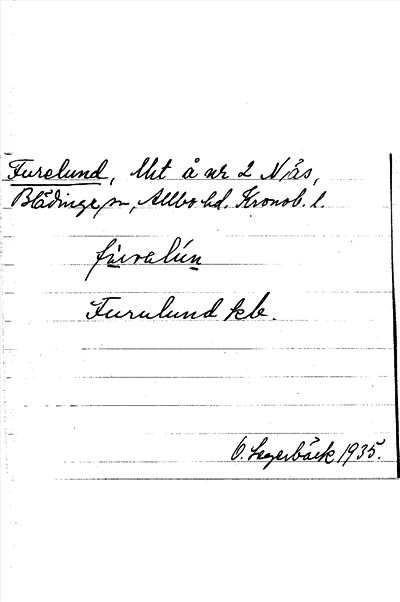 Furelund, Uht å nr 2 N ås,
Blädinge sn, Allbo hd. Kronob. l.
fùrɐlún
Furulund kb.
O. Segerbäck 1935.